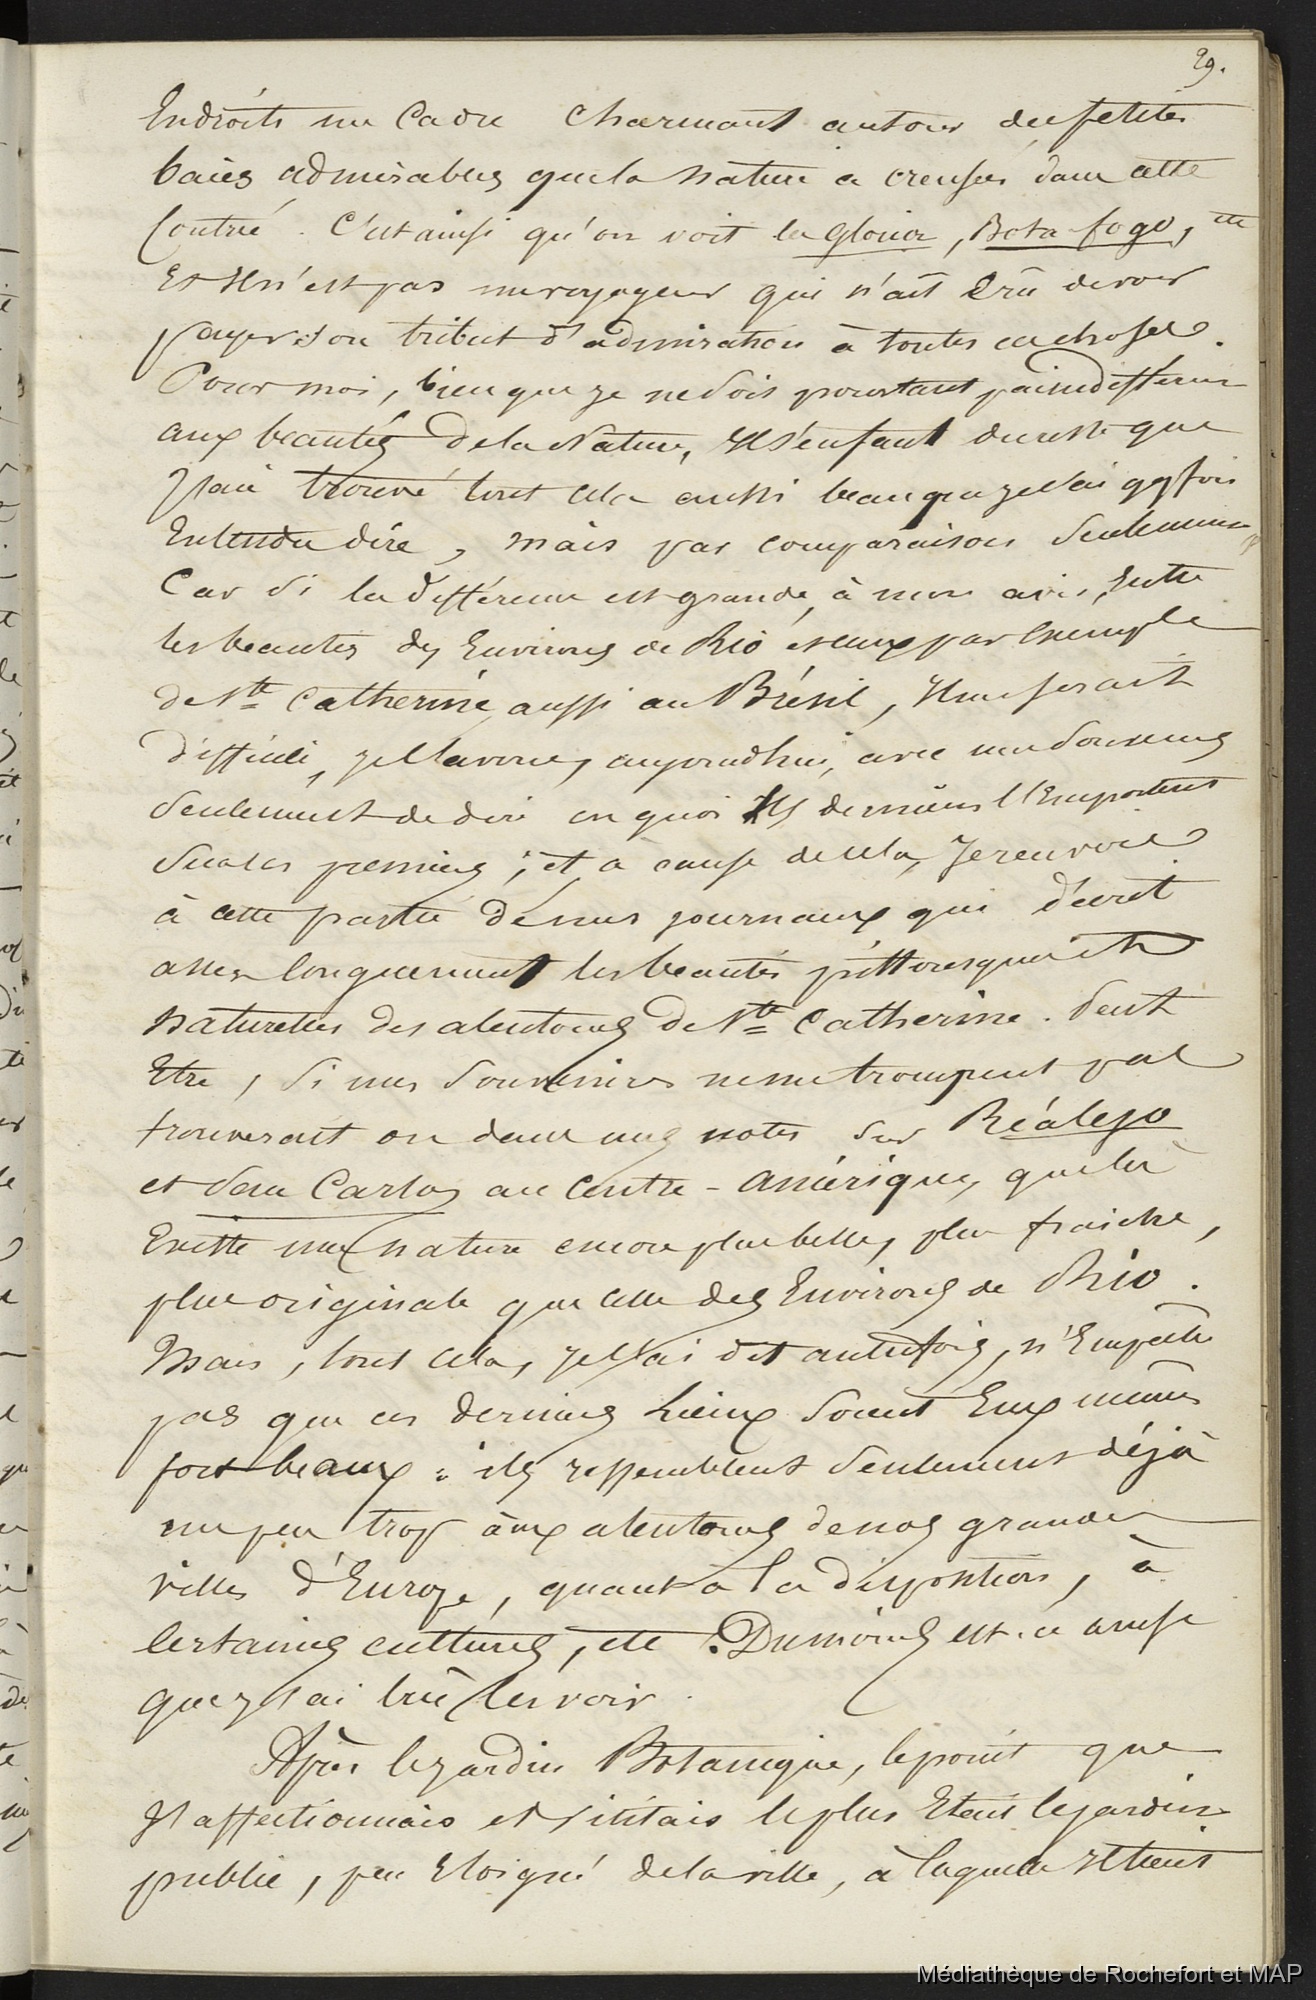 29.
Endroits un Cadre Charmant autour des petites
baies admirables que la nature a creusées dans cette
Contrée. C'est ainsi qu'on voit la Gloria, Bota-fogo, etc
Et Il n'est pas un voyageur qui n'ait Crû devoir
payer son tribut d'admiration à toutes ces choses.
Pour moi, bien que je ne sois pourtant pas indifférent
aux beautés de la Nature, Il s'en faut du reste que
J'aie trouvé tout cela aussi beau que je l'ai qqfois
Entendu dire, mais par comparaison seulement
Car si la différence est grande, à mon avis, Entre
les beautés des Environs de Rio et ceux par Exemple
de Ste Catherine, aussi au Brésil, Il me serait
difficile, je l'avoue, aujourdhui, avec mes souvenirs
seulement de dire en quoi Ils derniers l'Emportent
sur les premiers; et, à cause de cela, Je renvoie
à cette partie de mes journaux qui décrit
assez longuement les beautés pittoresques et
naturelles des alentours de Ste Catherine. Peut
Etre, si mes souvenirs ne me trompent pas
trouverait on dans mes notes sur Réalejo
et San Carlos au Centre-Amérique, que là
Existe une nature encore plus belle, plus fraiche,
plus originale que celle des Environs de Rio.
Mais, tout cela, je l'ai dit autrefois, n'Empêche
pas que ces derniers Lieux soient Eux mêmes
fort beaux : ils ressemblent seulement déjà
un peu trop aux alentours de nos grandes
villes d'Europe, quant à la disposition, à
certaines cultures, etc. Du moins est-ce ainsi
que j'ai crû les voir.
Après le jardin Botanique, le point que
J'affectionnais et visitais le plus Etait le jardin
public, peu Eloigné de la ville, à laquelle Il tient
Médiathèque de Rochefort et MAP